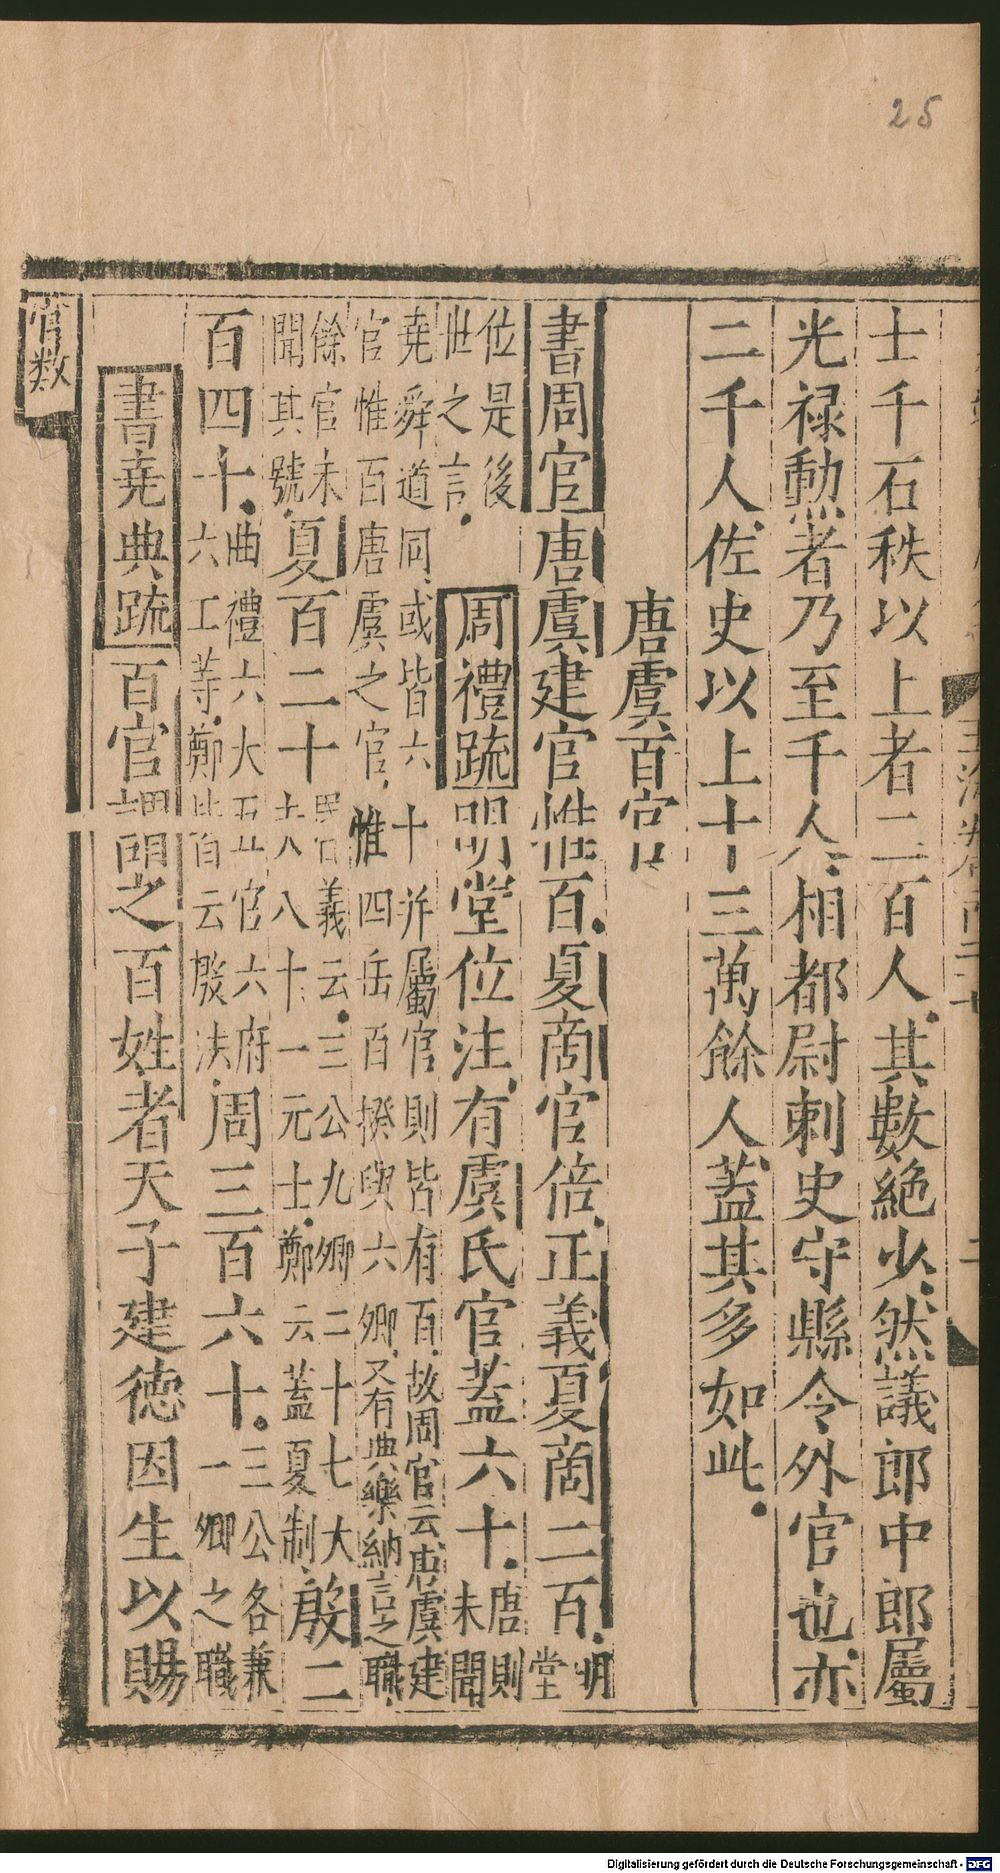 25
士千石秩以上者二百人其數絶少然議郎中郎屬
光禄勲者乃至千人相都尉刺史守縣令外官也亦
二千人佐史以上十三萬餘人蓋其多如此
唐虞百官
書周官唐虞建官惟百夏商官倍正義夏商二百明堂
位是後
世之言
周禮疏明堂位注有虞氏官蓋六十唐則
未聞
堯舜道同或皆六十并屬官則皆有百故周官云唐虞建
官惟百唐虞之官惟四岳百揆與六卿又有典樂納言之職
餘官未
聞其號
夏百二十昬義云三公九卿二十七大
夫八十一元士鄭云蓋夏制
殷二
百四十曲禮六大五官六府
六工等鄭皆云殷法
周三百六十三公各兼
一卿之職
書堯典疏百官謂之百姓者天子建德因生以賜
官数
Digitalisierung gefördert durch die Deutsche Forschungsgemeinschaft - DFG